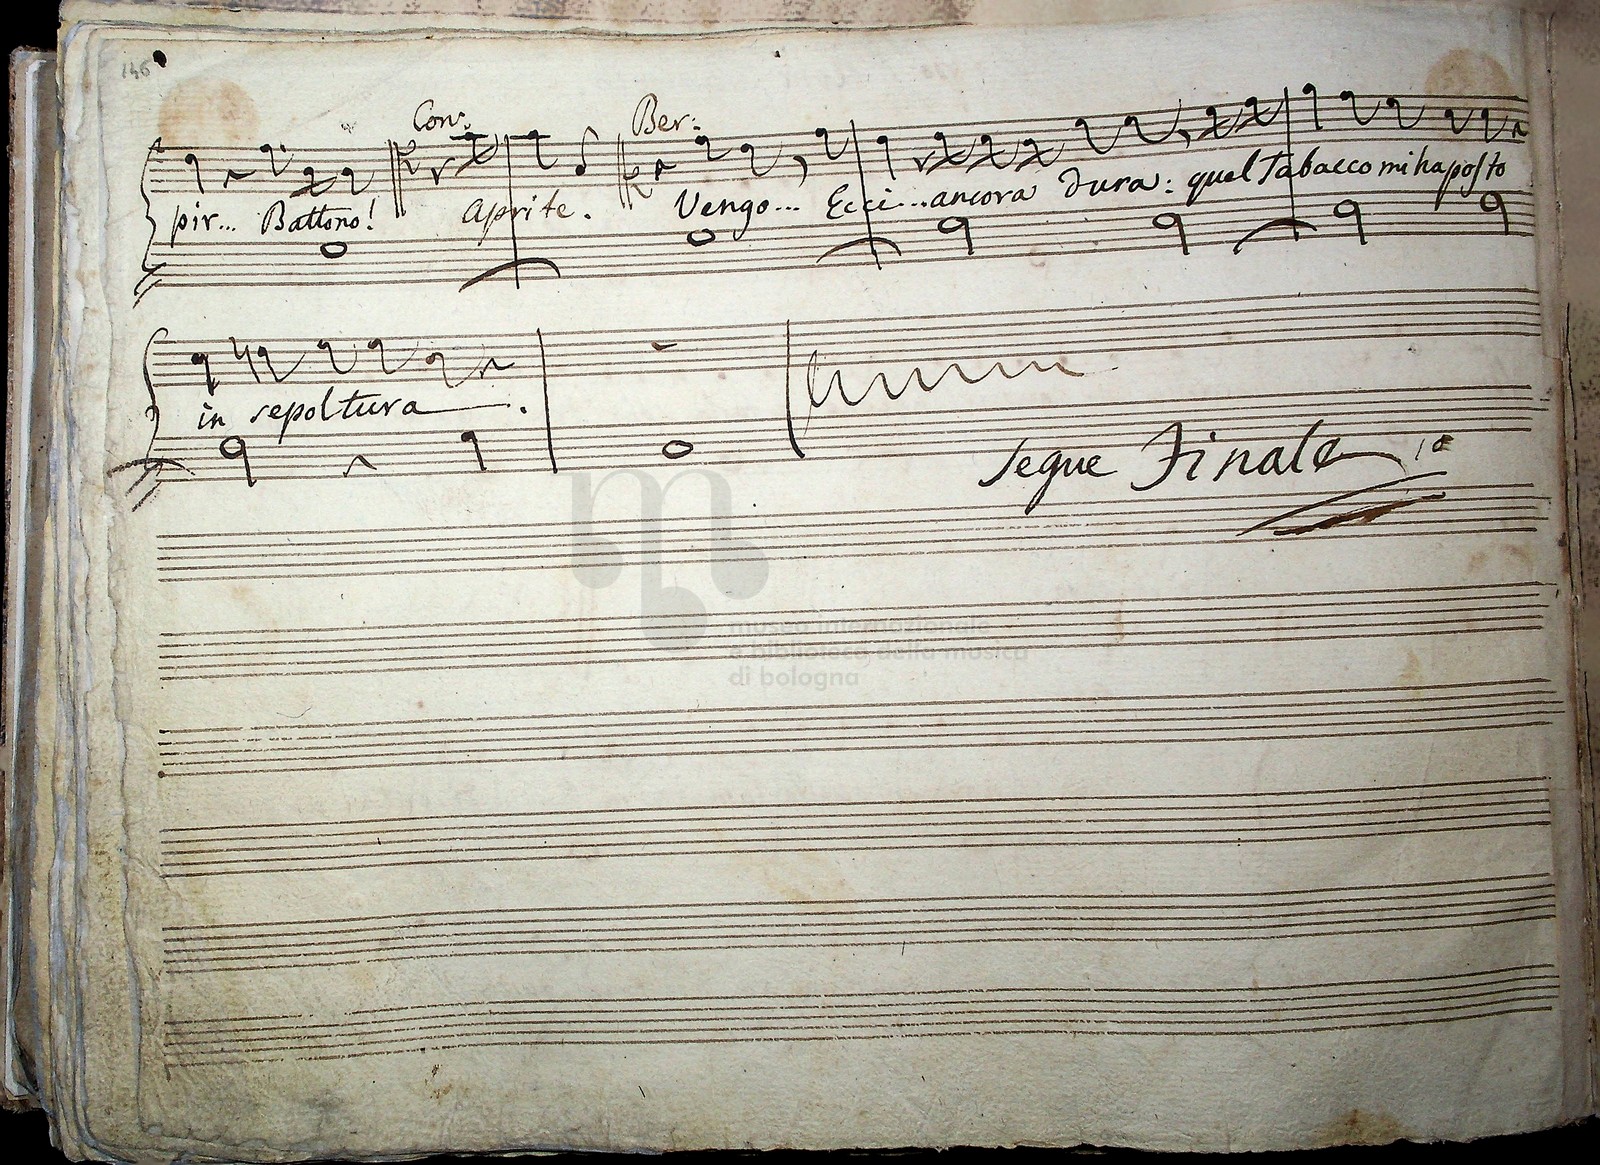 146
Con: Ber:
pir... Battono! Aprite. Vengo... Ecci...ancora dura: quel Tabacco mi ha posto
in sepoltura .
Segue Finale 1o
museo internazionale
e biblioteca della musica
di bologna